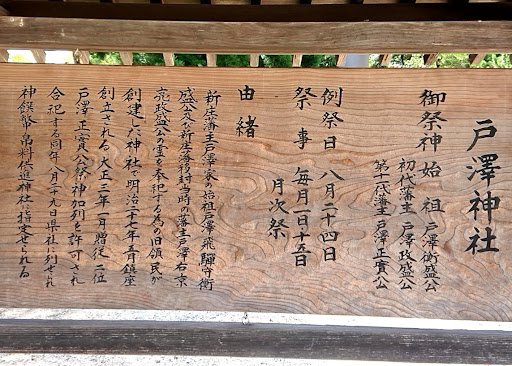 戸澤神社
御祭神 始祖 戸澤衡盛公
初代藩主 戸澤政盛公
第十一代藩主 戸澤正實公
例祭日 八月二十四日
祭事 毎月一日十五日
月次祭
由緒
新庄藩主戸澤家の始祖戸澤飛騨守衡
盛公及び新庄藩移封当時の藩主戸澤右京
亮政盛公の霊を奉祀する為の旧領民が
創建した神社で明治二十七年五月鎮座
創立される 大正三年一月贈従二位
戸澤正實公祭神加列を許可され
合祀する 同年八月二十九日県社に列せられ
神饌幣帛料供進神社に指定せられる